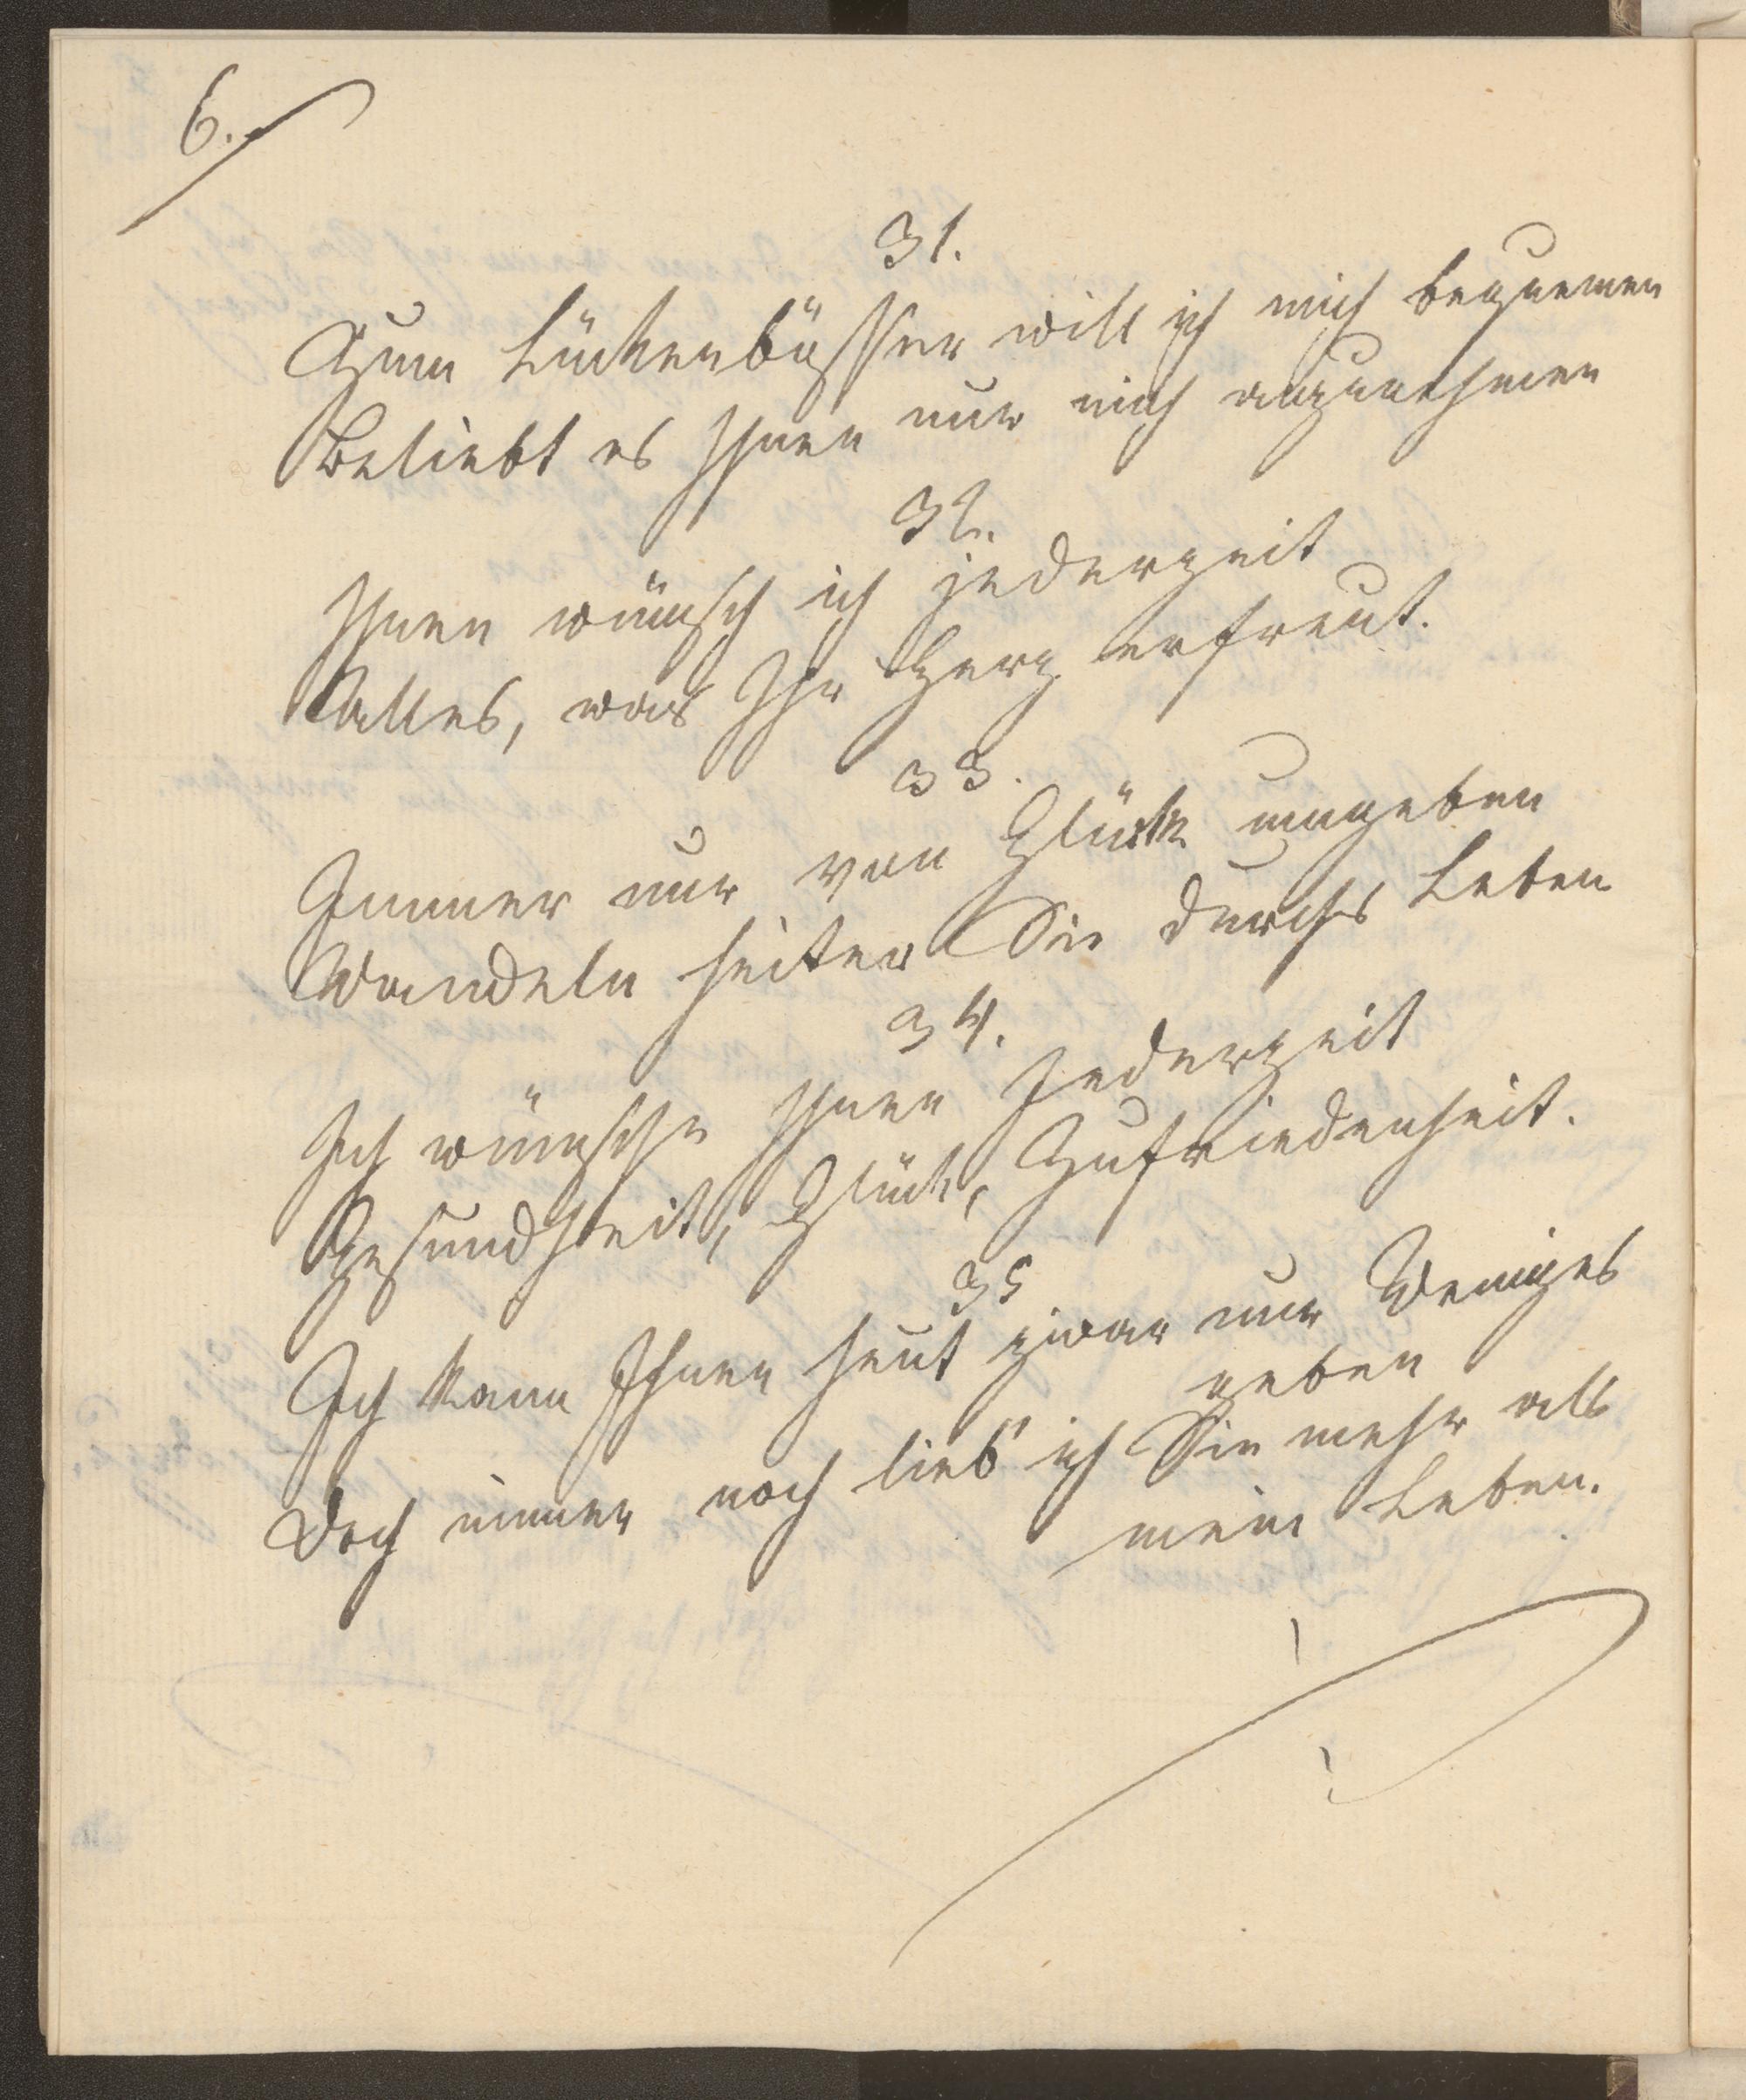 6.
31.
Zum Lückenbüsser will ich mich bequemen
Beliebt es Ihnen nur mich anzunehmen
32.
Ihnen wünsch ich jederzeit
Alles, was Ihr Herz erfreut.
33.
Immer nur von Glück umgeben
Wandeln heiter Sie durchs Leben
34.
Ich wünsche Ihnen Jederzeit
Gesundheit, Glück, Zufriedenheit.
35
Ich kann Ihnen heut zwar nur Weniges
geben
Doch immer noch lieb' ich Sie mehr als
mein Leben.